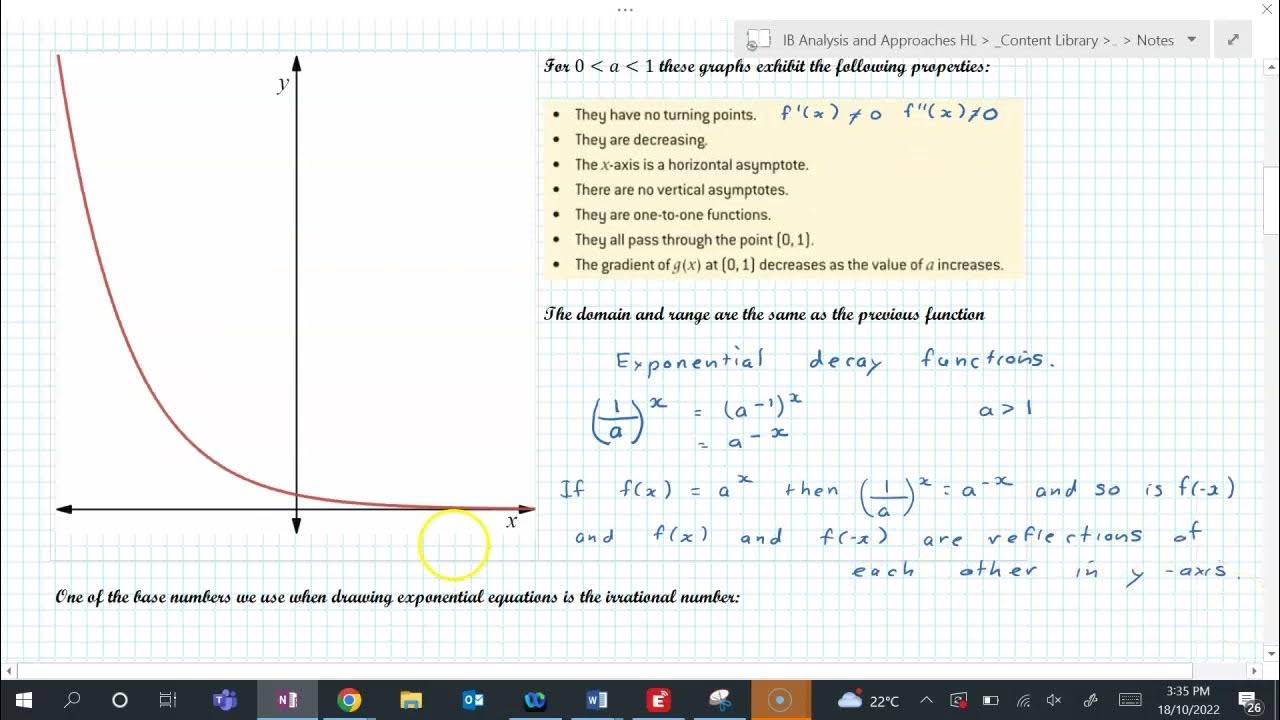 ...
IB Analysis and Approaches HL > _Content Library >.. > Notes
y
x
For 0 < a < 1 these graphs exhibit the following properties:
• They have no turning points. f'(x) ≠ 0 f''(x) ≠ 0
• They are decreasing.
• The x-axis is a horizontal asymptote.
• There are no vertical asymptotes.
• They are one-to-one functions.
• They all pass through the point (0, 1).
• The gradient of g(x) at (0, 1) decreases as the value of a increases.
The domain and range are the same as the previous function
Exponential decay functions.
(1/a)^x = (a^-1)^x a > 1
= a^-x
If f(x) = a^x then (1/a)^x = a^-x and so is f(-x)
and f(x) and f(-x) are reflections of
each other in y-axis.
One of the base numbers we use when drawing exponential equations is the irrational number:
22°C
3:35 PM
18/10/2022
26